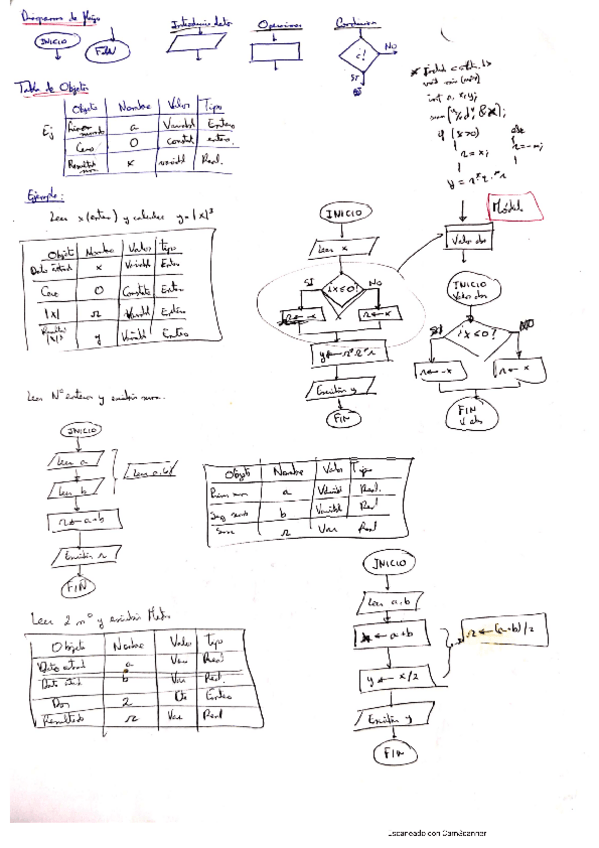 Diagramas de flujo
INICIO
FIN
Introducir dato
Operaciones
Condicion
¿?
NO
SI
Tabla de Objetos
Ej
Objeto Nombre Valor Tipo
a Variabl Entero
Cero 0 constat entero
x variabl Real.
# include <stdio.h>
void main (void)
int
"%d", &x);
if (x>0) else
r = x; r = -x;
y = r*r*r
Modul.
Ejemplo:
Leer x (entero) y calcular y=|x|³
Objeto Nombre Valor Tipo
Dato entrad x Variabl Entero
Cero 0 Constate Entero
|x| r Variabl Entero
|x|³ y Variabl Entero
INICIO
Leer x
¿x≤0?
SI
NO
r ← x
y ← r*r*r
Emitir y
FIN
Valor abs
INICIO
Valor abs
SI
NO
¿x≤0?
r ← -x
r ← x
FIN
V abs
Leer Nº enteros y emitir suma.
INICIO
Leer a
Leer b
Leer a,b
r ← a+b
Emitir r
FIN
Objeto Nombre Valor Tipo
Primer num a Variabl Real.
Seg num b Variabl Real
Suma r Var Real
Leer 2 nº y emitir Media
Objeto Nombre Valor Tipo
Dato entrad a Var Real
Dato entrad b Var Real.
Dos 2 Cte Entero
Resultado r Var Real
INICIO
Leer a,b
x ← a+b
y ← x/2
r ← (a+b)/2
Emitir y
FIN
Escaneado con CamScanner